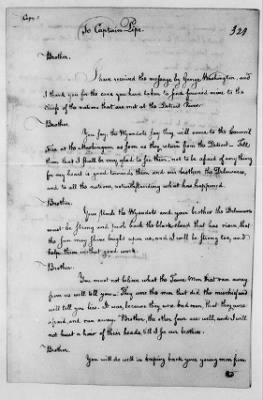 Copy
To Captain Pipe.
329
Brother.
I have received the message by George Washington, and
I thank you for the care you have taken to send forward mine to the
chiefs of the nations that are met at the Detroit River.
Brother
You say, the Wyandots say they will come to the Council
fire at the Muskingum as soon as they return from the Detroit - Tell
them that I shall be very glad to see them, not to be afraid of any thing
for my heart is good towards them, and our brothers the Delawares,
and to all the nations, notwithstanding what has happened.
Brother.
You think the Wyandots and your brother the Delawares
must be strong and push back the black cloud that has risen, that
the Sun may shine bright upon us, and I will be strong too, and
help them in that good work.
Brother.
You must not believe what the men that ran away
from us will tell you. They were the men that did the mischief and
will tell you lies. It was because they were bad men, that they were
afraid, and ran away. Brother, the other four are well, and I will
not hurt a hair of their heads till I see our brothers.
Brother
You will do well in keeping back your young men from